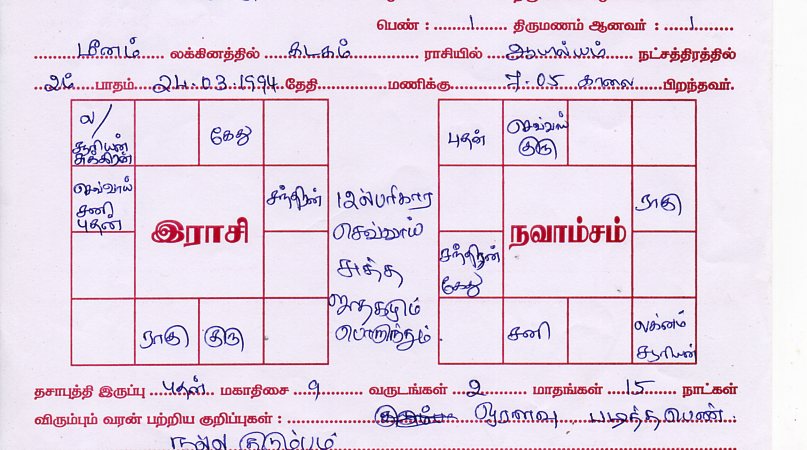 பெண் : 1 திருமணம் ஆனவர் : 1
மீனம் லக்கினத்தில் கடகம் ராசியில் ஆயில்யம் நட்சத்திரத்தில்
2ம் பாதம் 24.03.1994 தேதி மணிக்கு 7.05 காலை பிறந்தவர்.
ல/
சூரியன்
சுக்கிரன்
கேது
செவ்வாய்
சனி
புதன்
சந்திரன்
இராசி
ராகு
குரு
12ல்
செவ்வாய்
சுத்த
ஜாதகமும்
பொருந்தும்
புதன்
செவ்வாய்
குரு
ராகு
நவாம்சம்
சந்திரன்
கேது
சனி
லக்னம்
சூரியன்
தசாபுத்தி இருப்பு புதன் மகாதிசை 9 வருடங்கள் 2 மாதங்கள் 15 நாட்கள்
விரும்பும் வரன் பற்றிய குறிப்புகள் : ஓரளவு படித்த பெண்
நல்ல குடும்பம்